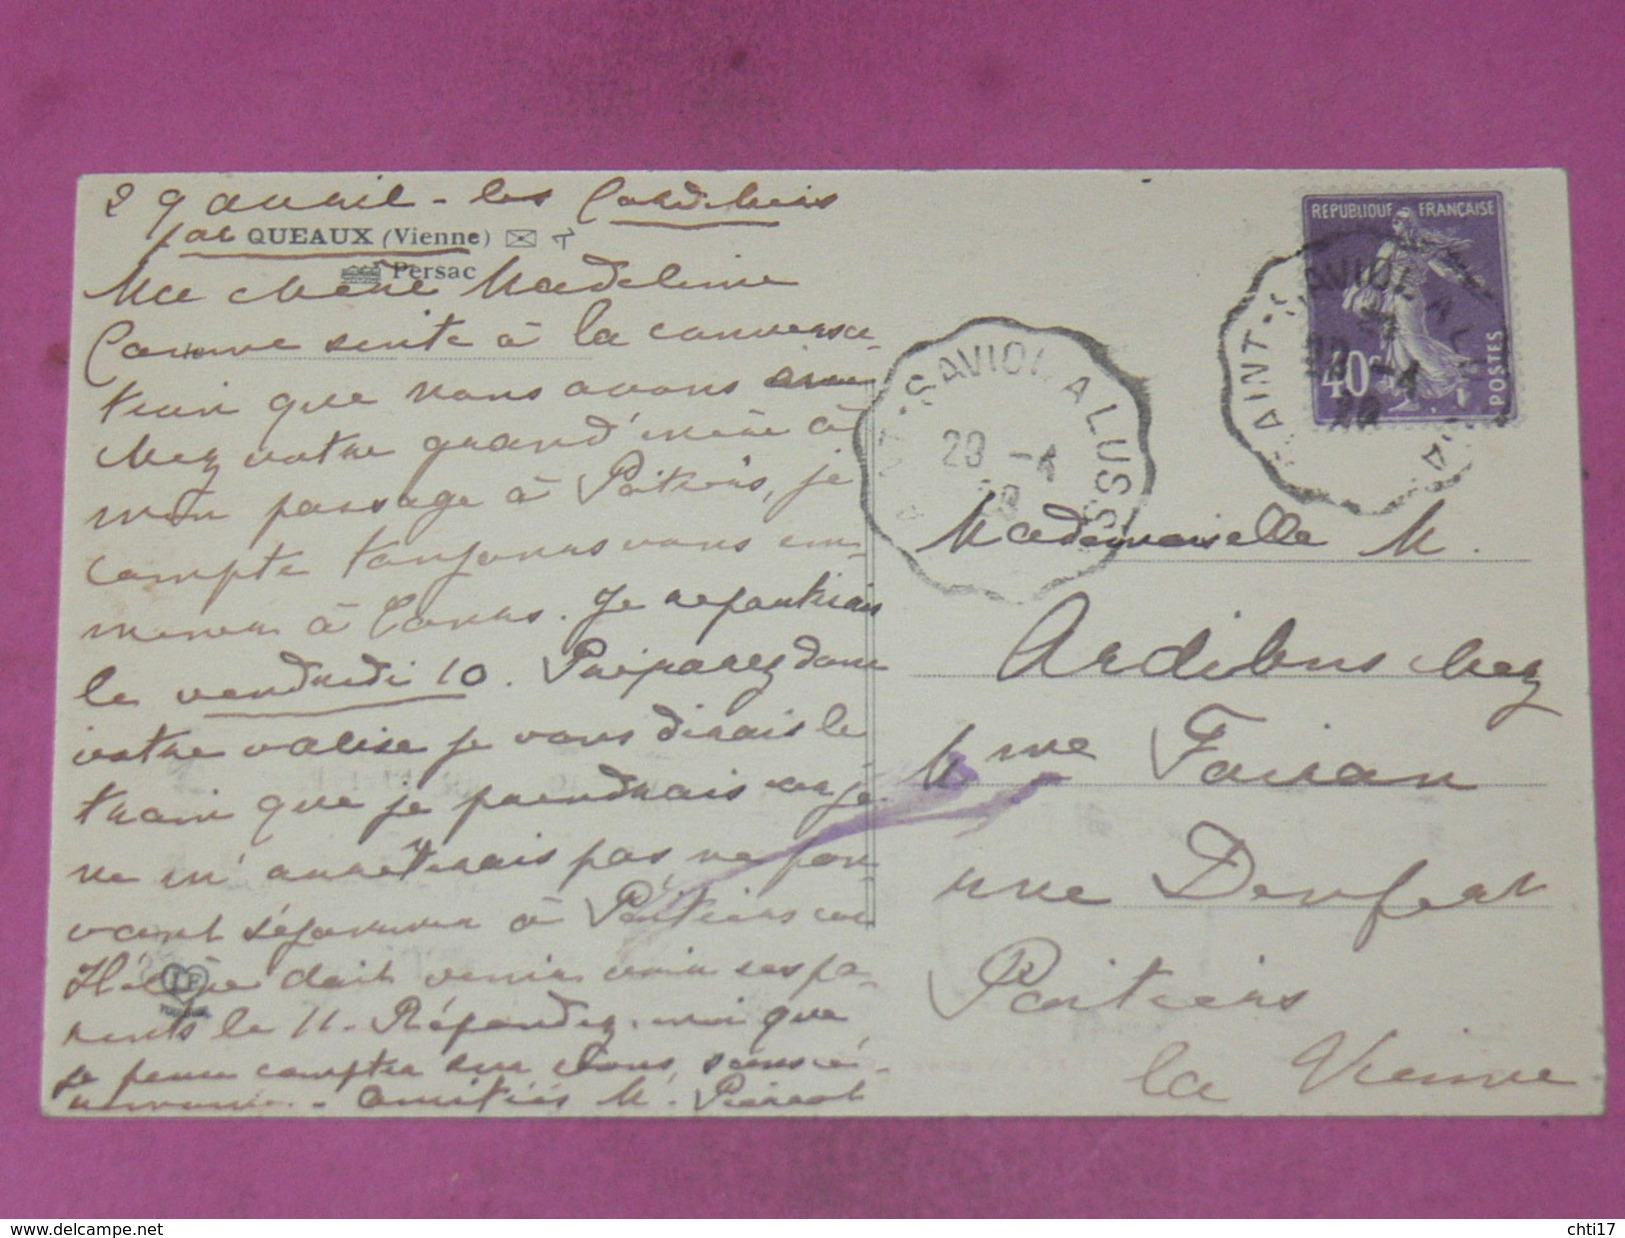 29 avril - les Cordeliers
par QUEAUX (Vienne)
Persac
Ma chère Madeleine
Comme suite à la conversa-
tion que nous avons eue
chez votre grand'mère à
mon passage à Poitiers, je
compte toujours vous em-
mener à Tours. Je repartirais
le vendredi 10. Préparez donc
votre valise je vous dirais le
train que je prendrais car je
ne m'arrêterais pas ne pou
vant séjourner à Poitiers car
Hélène doit venir voir ses pa-
rents le 11. Répondez-moi que
je peux compter sur vous,
amitiés M.
REPUBLIQUE FRANÇAISE
40c
POSTES
SAINT-SAVIOL A LUSSAC
29 -4
Mademoiselle M.
Ardibus chez
Mme Foiran
rue Denfert
Poitiers
la Vienne
www.delcampe.net
chti17